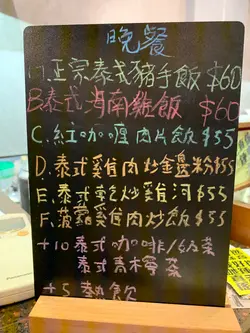 晚餐
A.正宗泰式豬手飯 $60
B.泰式海南雞飯 $60
C.紅咖喱肉片飯 $55
D.泰式雞肉炒金邊粉 $55
E.泰式乾炒雞河 $55
F.菠蘿雞肉炒飯 $55
+10 泰式咖啡/奶茶
泰式青檸茶
+5 熱飲